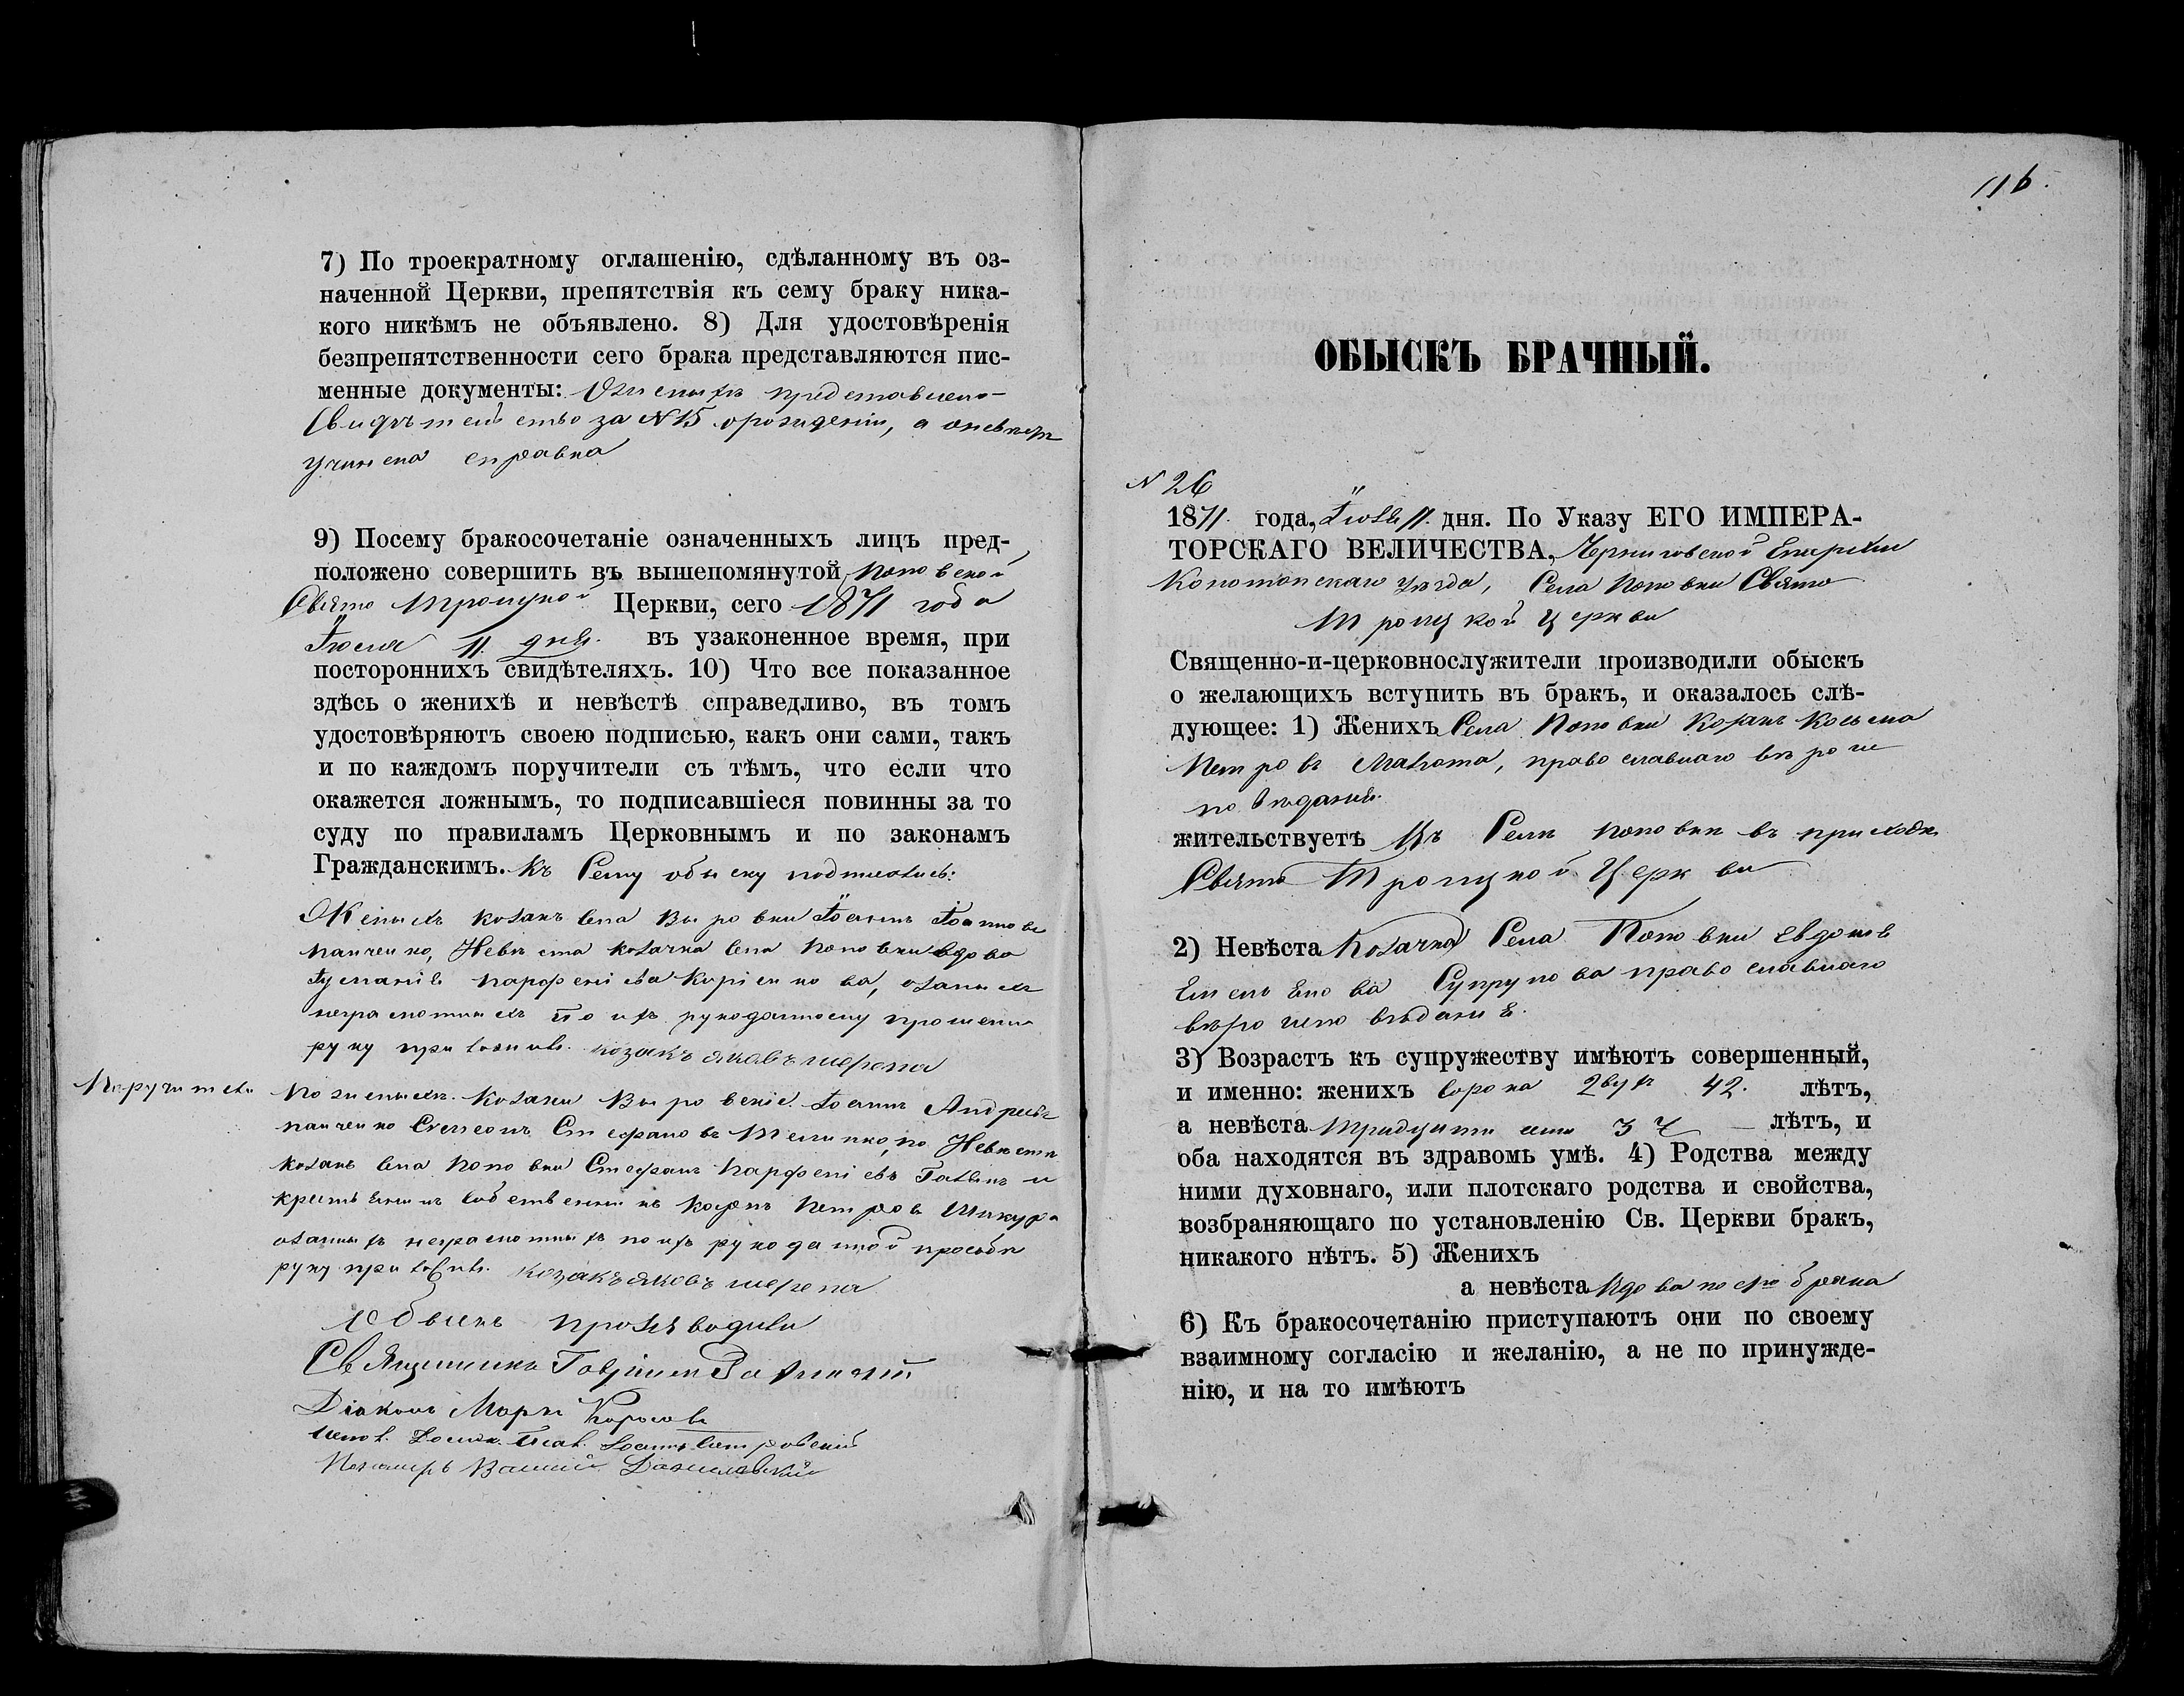 7) По троекратному оглашенію, сдѣланному въ оз-
наченной Церкви, препятствія къ сему браку ника-
кого никѣмъ не объявлено. 8) Для удостовѣренія
безпрепятственности сего брака представляются пис-
менные документы: О женихѣ представлено
свидѣтельство за N 15 о рожденіи, а о невѣстѣ
учинена справка
9) Посему бракосочетаніе означенныхъ лицъ пред-
положено совершить въ вышепомянутой Поповской
Свято Троицкой Церкви, сего 1871 года
Іюля 11 дня. въ узаконенное время, при
постороннихъ свидѣтеляхъ. 10) Что все показанное
здѣсь о женихѣ и невѣстѣ справедливо, въ томъ
удостовѣряютъ своею подписью, какъ они сами, такъ
и по каждомъ поручители съ тѣмъ, что если что
окажется ложнымъ, то подписавшіеся повинны за то
суду по правиламъ Церковнымъ и по законамъ
Гражданскимъ. Къ Сему обыску подписались:
Женихъ козакъ села Выровки Іоаннъ Іоанновъ
Панченко, Невѣста козачка села Поповки вдова
Іуліанія Парфеніева, о заныхъ
неграмотныхъ по ихъ рукоданному прошенію
руку приложилъ. козакъ Яковъ Шерепа
Поручители
По женихѣ. Козаки Выровскіе Іоаннъ Андреевъ
Панченко Стефановъ, по Невѣстѣ
козакъ села Поповки Стефанъ Парфеніевъ и
собственникъ Петровъ
неграмотныхъ по ихъ рукоданной просьбѣ
руку приложилъ. козакъ Яковъ Шерепа
Обыскъ производили
Священникъ Гавріилъ
Діаконъ Маркъ
Іоаннъ
Пономарь Василій Данилевскій
116.
ОБЫСКЪ БРАЧНЫЙ.
N 26
1871. года, Іюля 11. дня. По Указу ЕГО ИМПЕРА-
ТОРСКАГО ВЕЛИЧЕСТВА, Черниговской Епархіи
Конотопскаго уѣзда, Села Поповки Свято
Троицкой Церкви
Священно-и-церковнослужители производили обыскъ
о желающихъ вступить въ бракъ, и оказалось слѣ-
дующее: 1) Женихъ Села Поповки Козакъ Косьма
Петровъ, православнаго вѣроис
повѣданія.
жительствуетъ Въ Селѣ Поповкѣ въ приходѣ
Свято Троицкой Церкви
2) Невѣста Козачка Села Поповки Евдокія
Емельянова Супрунова православнаго
вѣроисповѣданія.
3) Возрастъ къ супружеству имѣютъ совершенный,
и именно: женихъ сорока двухъ 42. лѣтъ,
а невѣста тридцати лѣтъ, и
оба находятся въ здравомъ умѣ. 4) Родства между
ними духовнаго, или плотскаго родства и свойства,
возбраняющаго по установленію Св. Церкви бракъ,
никакого нѣтъ. 5) Женихъ
а невѣста Вдова по 1мъ бракѣ
6) Къ бракосочетанію приступаютъ они по своему
взаимному согласію и желанію, а не по принужде-
нію, и на то имѣютъ